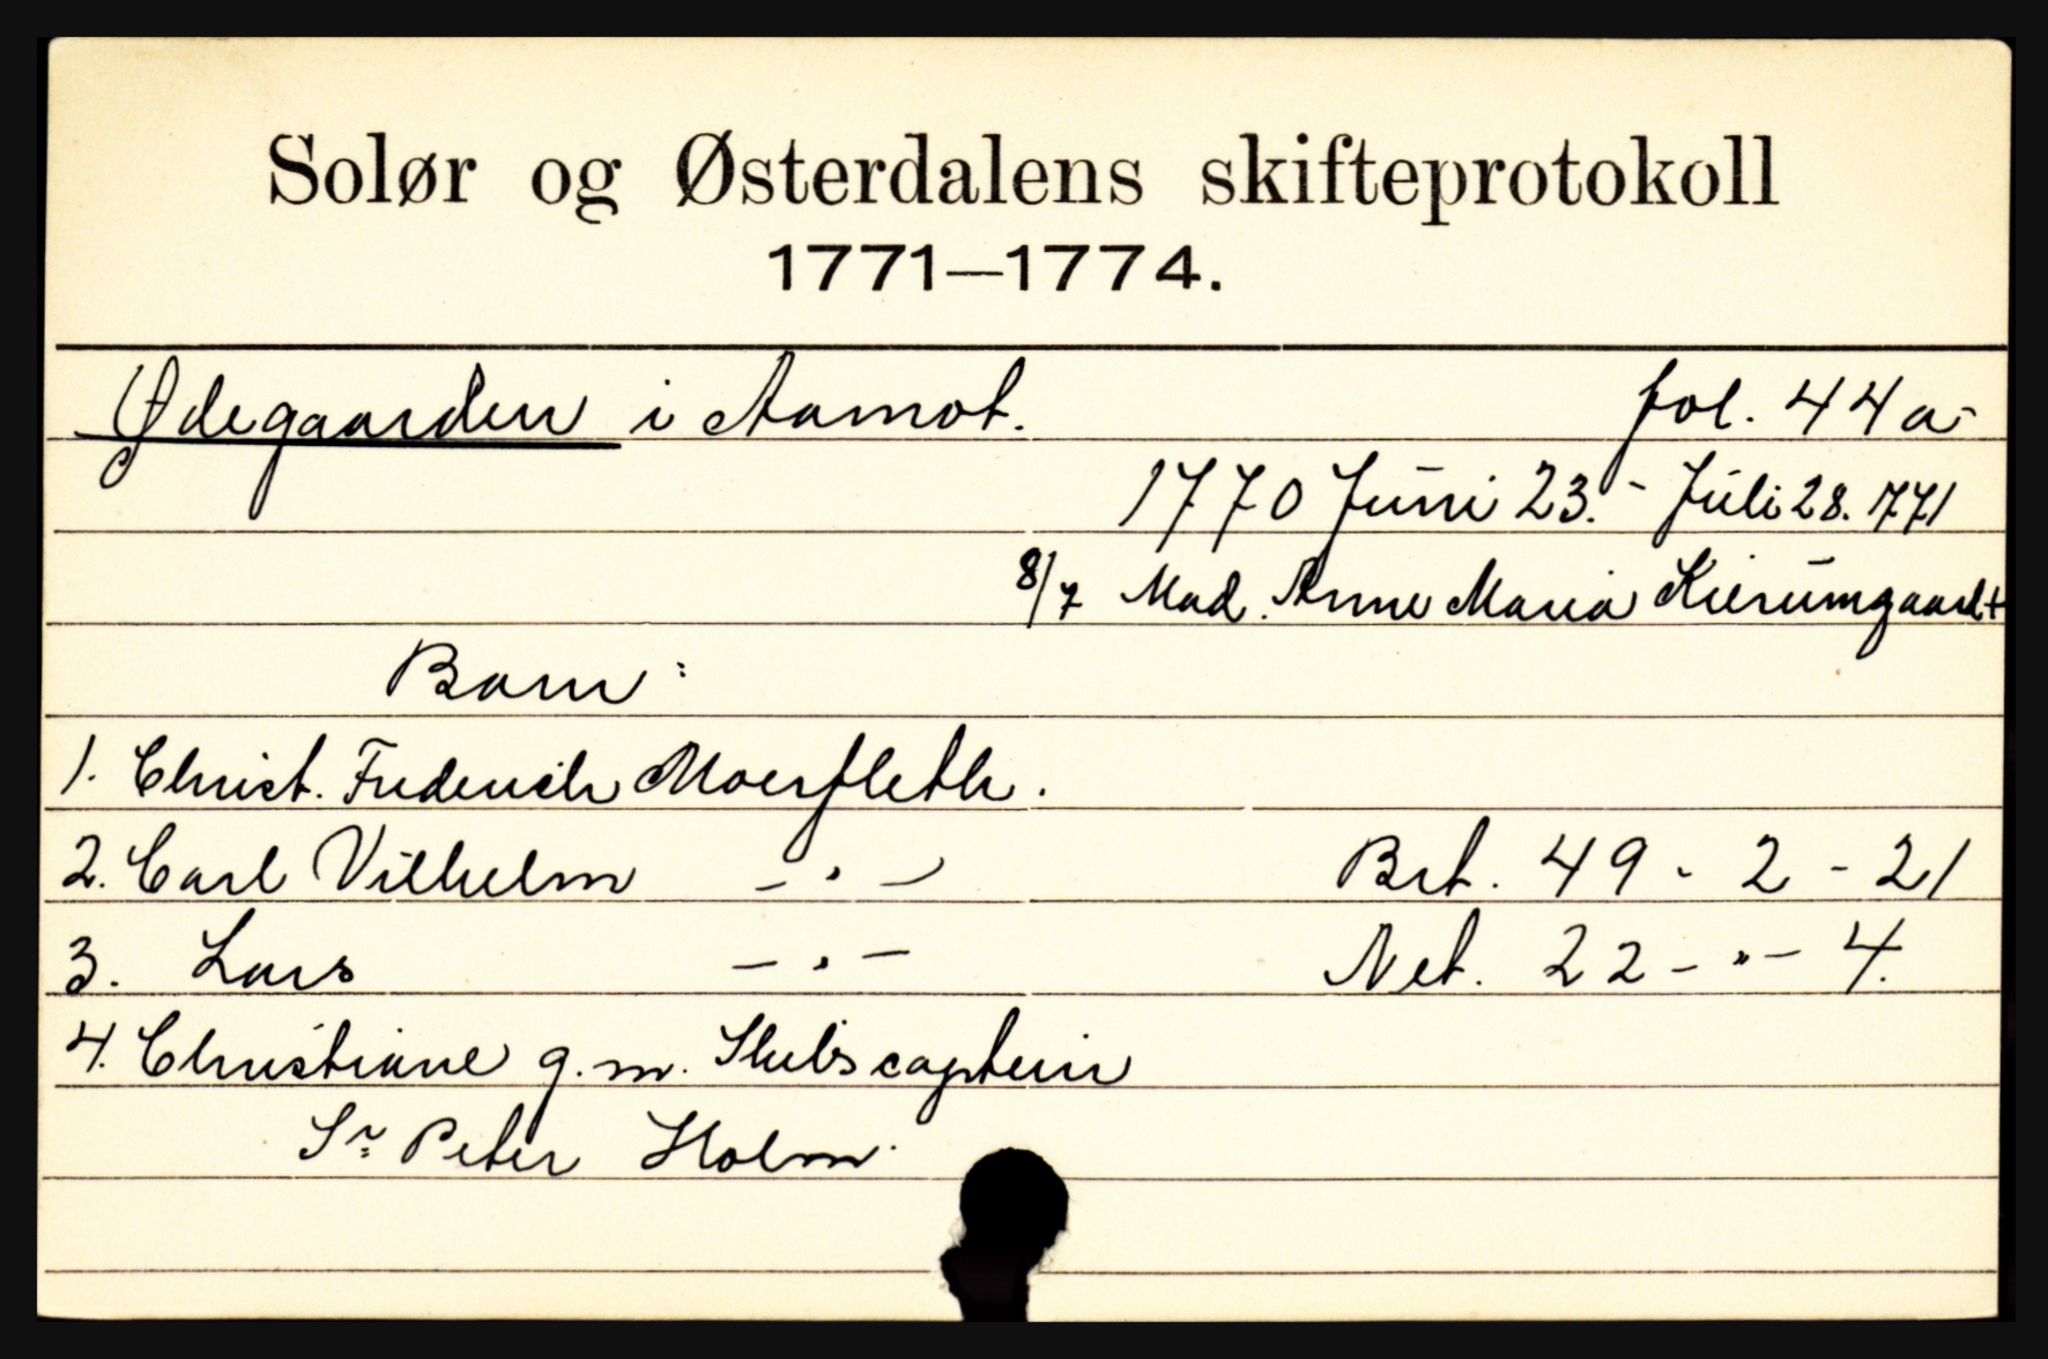 Solør og Østerdalens skifteprotokoll
1771—1774.
Ødegaarden i Aamot. fol. 44 a-
1770 Juni 23. - Juli 28. 1771
8/7 Mad. Anne Maria Kierumgaard +
Barn:
1. Christ. Frederich Moerfleth.
2. Carl Vilhelm - " - Brt. 49 - 2 - 21
3. Lars - " - Net. 22 - " - 4.
4. Christiane g. m. Skibscaptein
Sr. Peter Holm.